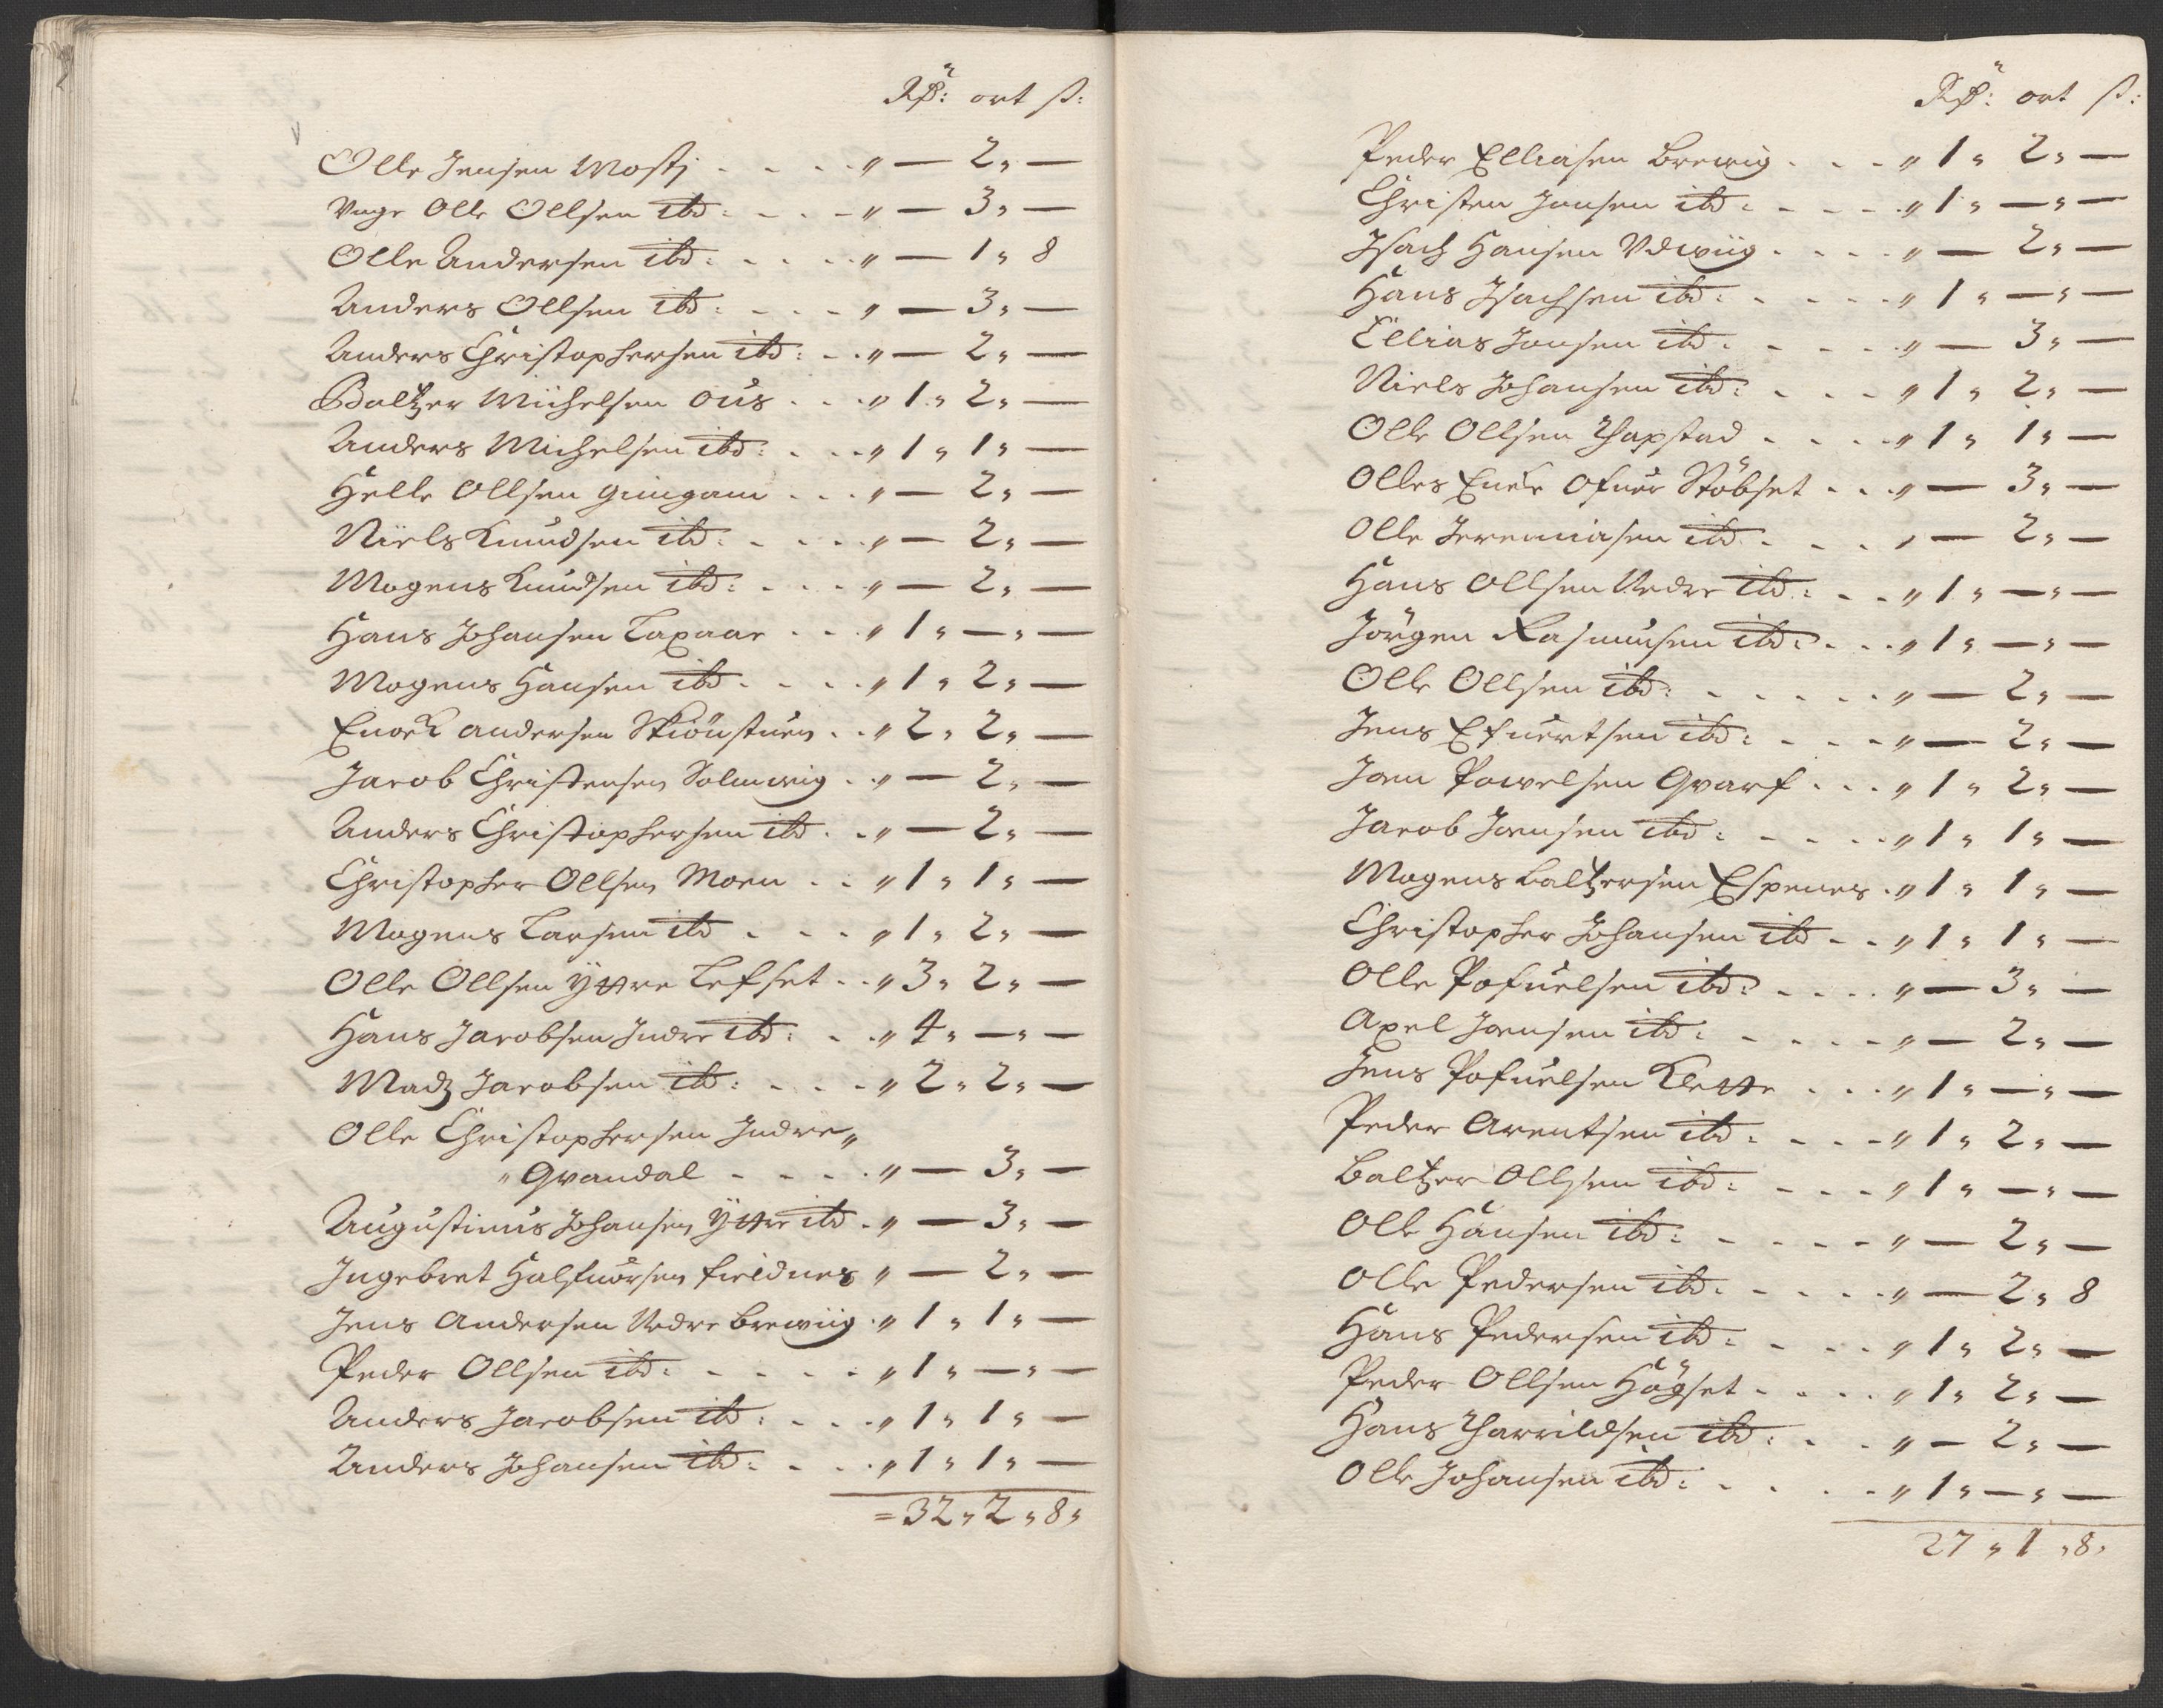 Rdr: ort ß:
Olle Jensen Mostj - - - - „ — 2„ —
Unge Olle Ollsen ibd: - - - „ — 3„ —
Olle Andersen ibd: - - - - „ — 1„ 8
Anders Ollsen ibd: - - - „ — 3„ —
Anders Christophersen ibd: - - „ — 2„ —
Baltzer Michelsen Ous - - - „ 1„ 2„ —
Anders Michelsen ibd: - - - „ 1„ 1„ —
Helle Ollsen Gimgam - - - „ — 2„ —
Niels Knudsen ibd: - - - - „ — 2„ —
Mogens Knudsen ibd: - - - „ — 2„ —
Hans Johansen Taxaar - - - „ 1„ —„ —
Mogens Hansen ibd - - - - „ 1„ 2„ —
Enoch Andersen Skiönstuen - - „ 2„ 2„ —
Jacob Christensen Solmvig - - „ — 2„ —
Anders Christophersen ibd - - „ — 2„ —
Christopher Ollsen Moen - - „ 1„ 1„ —
Mogens Larsen ibd - - - „ 1„ 2„ —
Olle Ollsen Yttre Lefset - - „ 3„ 2„ —
Hans Jacobsen Indre ibd: - - „ 4„ —„ —
Madz Jacobsen ibd: - - - „ 2„ 2„ —
Olle Christophersen Indre„
„Qvandal - - - - „ — 3„ —
Augustinus Johansen Yttre ibd - „ — 3„ —
Ingebret Halfuorsen Fieldnes „ — 2„ —
Jens Andersen Nedre Brewiig - „ 1„ 1„ —
Peder Ollsen ibd: - - - - - „ 1„ —„ —
Anders Jacobsen ibd: - - - „ 1„ 1„ —
Anders Johansen ibd: - - - „ 1„ 1„ —
= 32„ 2„ 8„
Rdr: ort ß:
Peder Elliasen Brewig - - - „ 1„ 2„ —
Christen Jonsen ibd: - - - - „ 1„ —„ —
Isach Hansen Udwiig - - - - „ — 2„ —
Hans Isachsen ibd: - - - - „ 1„ —„ —
Ellias Jonsen ibd: - - - - „ — 3„ —
Niels Johansen ibd: - - - „ 1„ 2„ —
Olle Ollsen Thapstad - - - - „ 1„ 1„ —
Olles Encke Ofuer Stöbset - - „ — 3„ —
Olle Jeremiasen ibd - - - „ — 2„ —
Hans Ollsen Nedre ibd: - - „ 1„ —„ —
Jörgen Rasmusen ibd: - - - „ 1„ —„ —
Olle Ollsen ibd: - - - - - „ — 2„ —
Jens Efuertsen ibd: - - - „ — 2„ —
Joen Powelsen Qvarf - - - „ 1„ 2„ —
Jacob Joensen ibd: - - - - „ 1„ 1„ —
Mogens Baltzersen Espenes - „ 1„ 1„ —
Christopher Johansen ibd - - „ 1„ 1„ —
Olle Pofuelsen ibd: - - - - „ — 3„ —
Axel Joensen ibd: - - - - - „ — 2„ —
Jens Pofuelsen Klette - - - „ 1„ —„ —
Peder Arentsen ibd: - - - - „ 1„ 2„ —
Baltzer Ollsen ibd: - - - - „ 1„ —„ —
Olle Hansen ibd: - - - - - „ — 2„ —
Olle Pedersen ibd: - - - - „ — 2„ 8
Hans Pedersen ibd: - - - - „ 1„ 2„ —
Peder Ollsen Högset - - - - „ 1„ 2„ —
Hans Tharrildsen ibd: - - - „ — 2„ —
Olle Johansen ibd: - - - - „ 1„ —„ —
27„ 1„ 8„